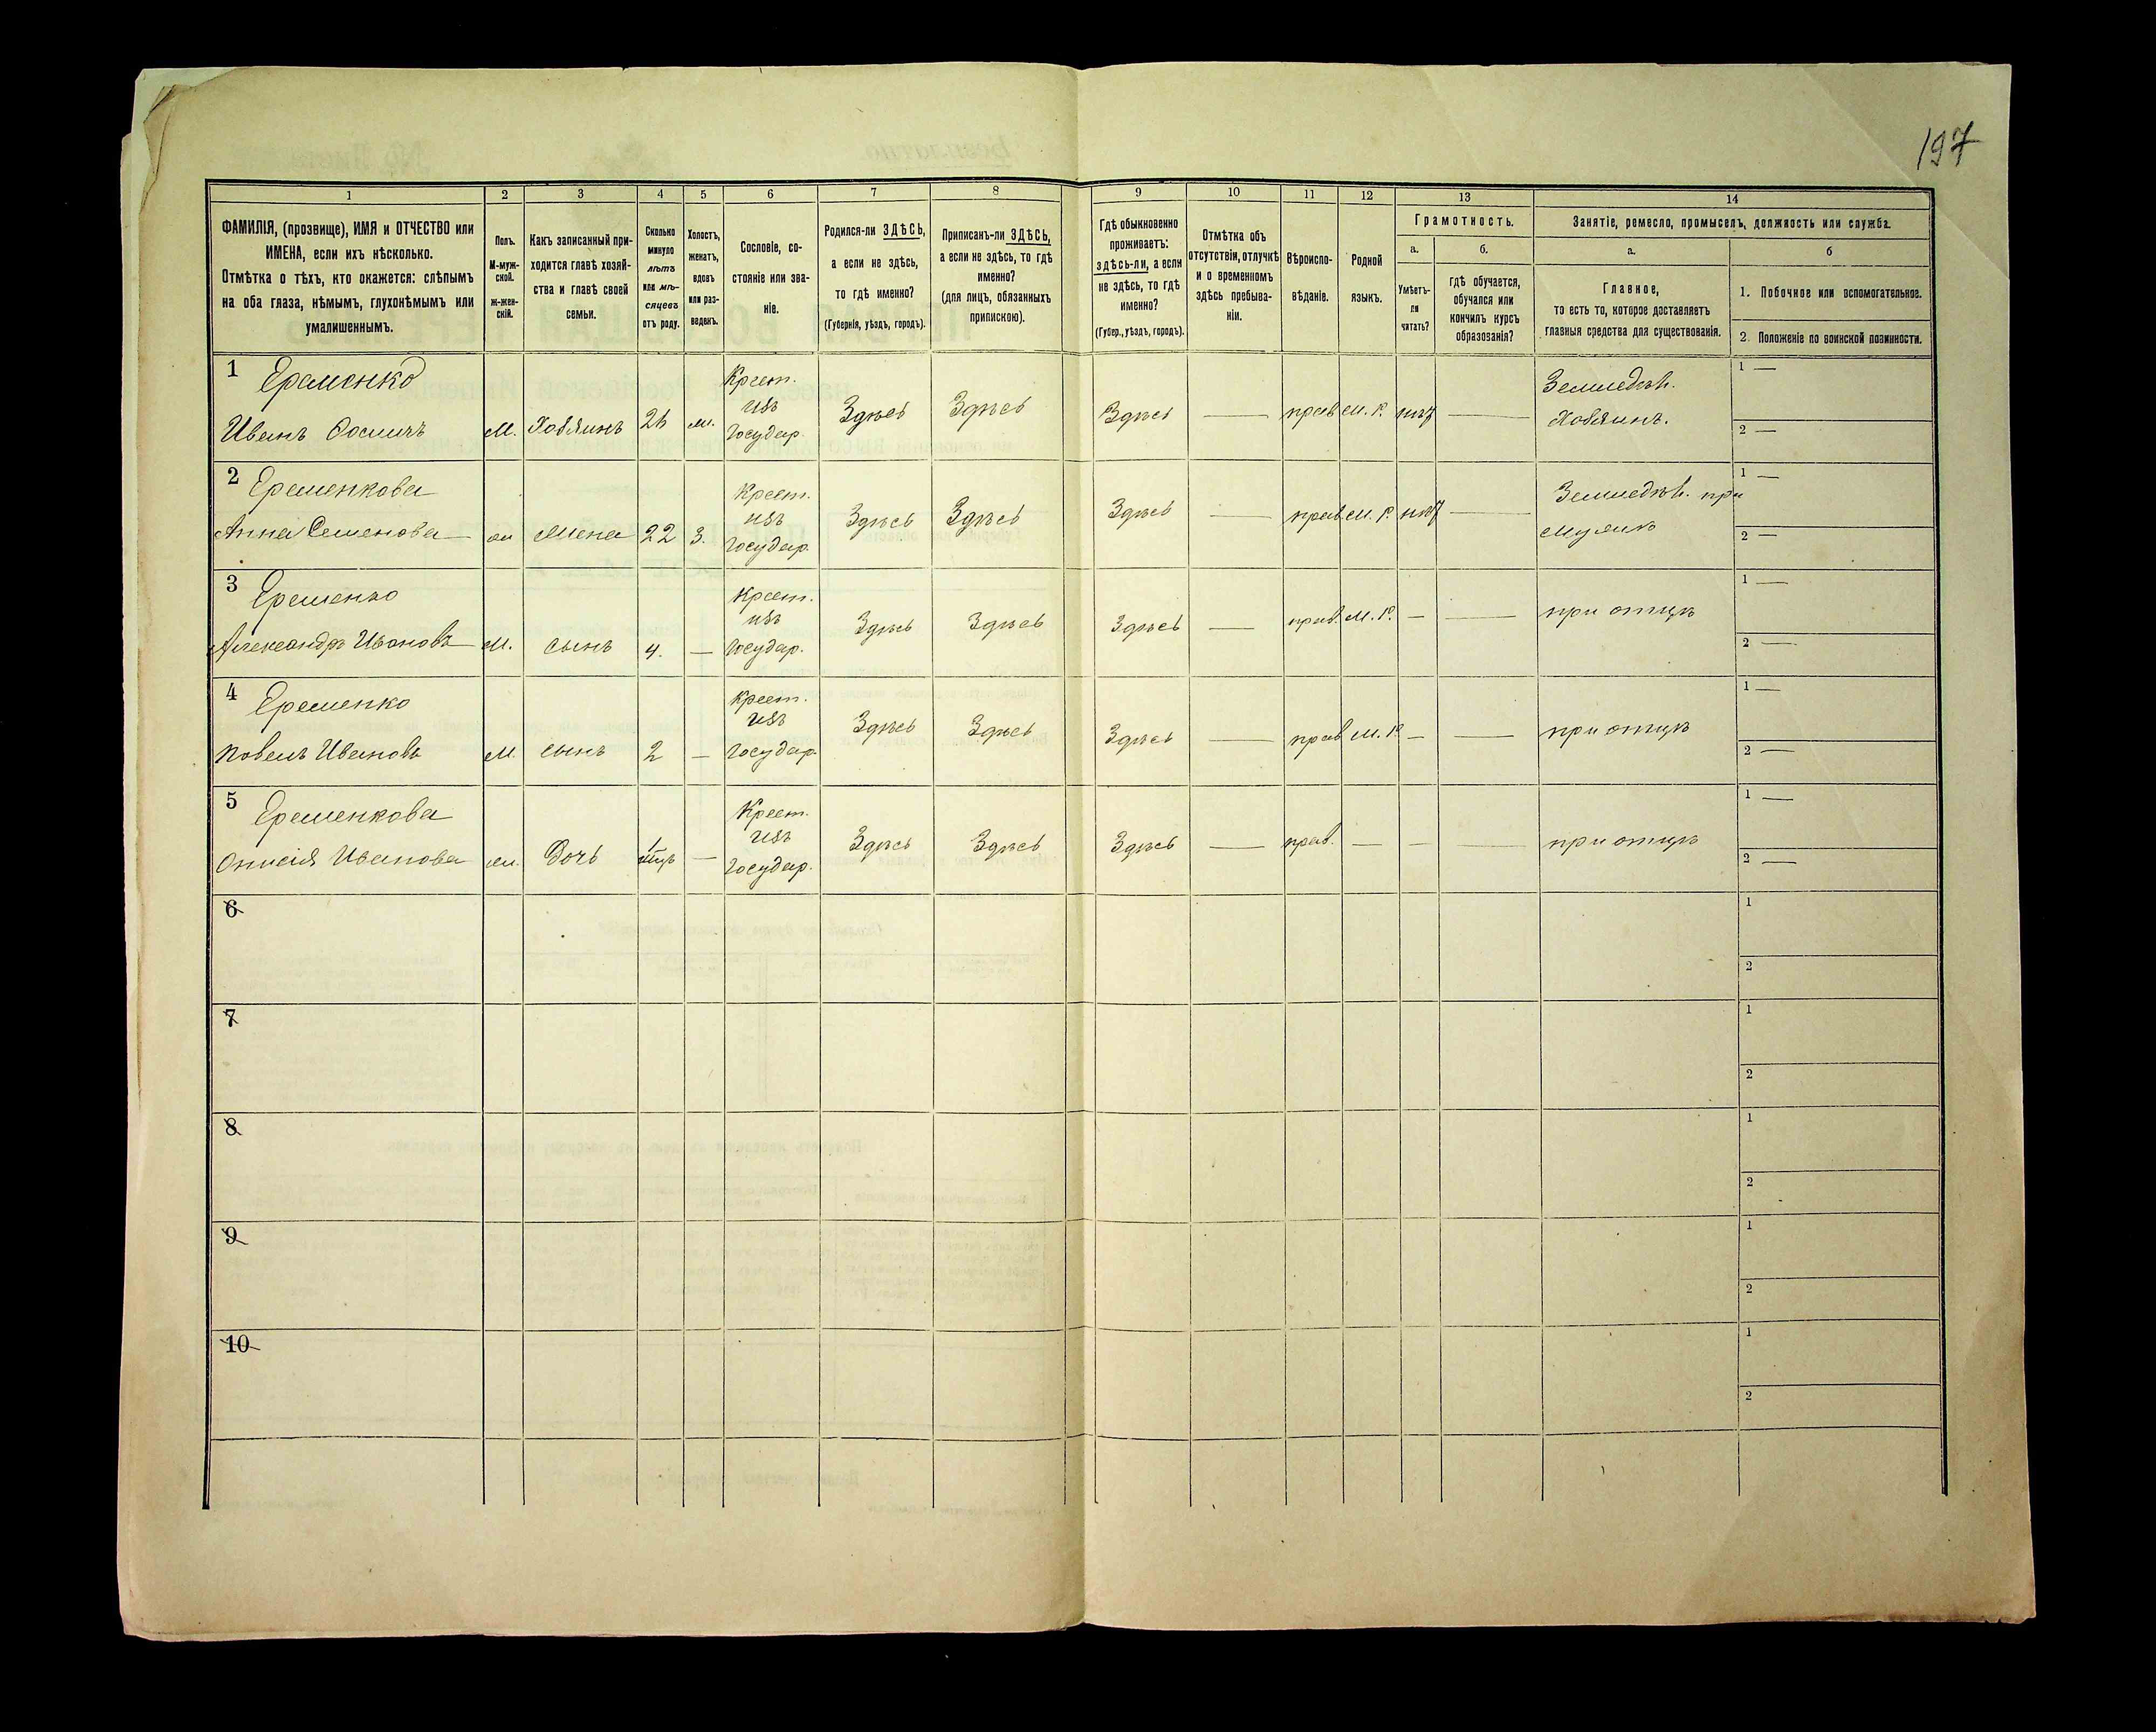 197
1
2
3
4
5
6
7
8
9
10
11
12
13
14
ФАМИЛІЯ, (прозвище), ИМЯ и ОТЧЕСТВО или
ИМЕНА, если ихъ нѣсколько.
Отмѣтка о тѣхъ, кто окажется: слѣпымъ
на оба глаза, нѣмымъ, глухонѣмымъ или
умалишеннымъ.
Полъ.
М-муж-
ской.
ж-жен-
скій.
Какъ записанный при-
ходится главѣ хозяй-
ства и главѣ своей
семьи.
Сколько
минуло
лѣтъ
или мѣ-
сяцевъ
отъ роду.
Холостъ,
женатъ,
вдовъ
или раз-
веденъ.
Сословіе, со-
стояніе или зва-
ніе.
Родился-ли ЗДѢСЬ,
а если не здѣсь,
то гдѣ именно?
(Губернія, уѣздъ, городъ).
Приписанъ-ли ЗДѢСЬ,
а если не здѣсь, то гдѣ
именно?
(для лицъ, обязанныхъ
припискою).
Гдѣ обыкновенно
проживаетъ:
здѣсь-ли, а если
не здѣсь, то гдѣ
именно?
(Губер., уѣздъ, городъ).
Отмѣтка объ
отсутствіи, отлучкѣ
и о временномъ
здѣсь пребыва-
ніи.
Вѣроиспо-
вѣданіе.
Родной
языкъ.
Грамотность.
а.
Умѣетъ-
ли
читать?
б.
гдѣ обучается,
обучался или
кончилъ курсъ
образованія?
Занятіе, ремесло, промыселъ, должность или служба.
а.
Главное,
то есть то, которое доставляетъ
главныя средства для существованія.
б
1. Побочное или вспомогательное.
2. Положеніе по воинской повинности.
1 Еременко
Иванъ
М.
Хозяинъ
ж.
Крест.
изъ
Государ.
Здѣсь
Здѣсь
Здѣсь —
прав. М. Р. нѣт —
Земледѣл.
Хозяинъ.
1 —
2 —
2 Еременкова
Анна Семенова
ж
Жена
22
З.
Крест.
изъ
Государ.
Здѣсь
Здѣсь
Здѣсь —
прав. М. Р. нѣт —
Земледѣл. при
мужѣ
1 —
2 —
3 Еременко
Александръ Ивановъ
М.
сынъ
4.
—
Крест.
изъ
Государ.
Здѣсь
Здѣсь
Здѣсь —
прав. М. Р. — —
при отцѣ
1 —
2 —
4 Еременко
Павелъ Ивановъ
М.
сынъ
2
—
Крест.
изъ
Государ.
Здѣсь
Здѣсь
Здѣсь —
прав М. Р. — —
при отцѣ
1 —
2 —
5 Еременкова
Ивановa
ж.
Дочь
—
Крест.
изъ
Государ.
Здѣсь
Здѣсь
Здѣсь —
прав. — — —
при отцѣ
1 —
2 —
6
1
2
7
1
2
8
1
2
9
1
2
10
1
2